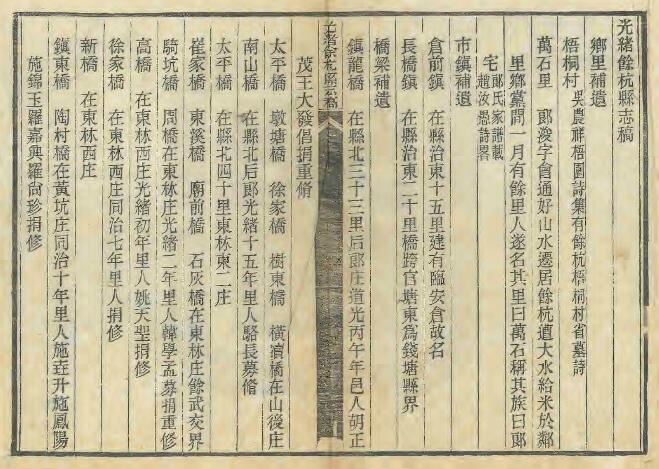 光緒餘杭縣志稿
鄉里補遺
梧桐村 吳農祥梧園詩集有餘杭梧桐村省墓詩
萬石里 郎浚字會通好山水遷居餘杭道大水給米於鄰
里鄉黨閒一月有餘里人遂名其里曰萬石稱其族曰郎
宅 郎氏家譜載
趙汝愚詩畧
市鎮補遺
倉前鎮 在縣治東十五里建有臨安倉故名
長橋鎮 在縣治東二十里橋跨官塘東爲錢塘縣界
橋梁補遺
鎮龍橋 在縣北三十三里后郎庄道光丙午年邑人胡正
茂王大發倡捐重脩
太平橋 墩塘橋 徐家橋 樹東橋 橫瀆橋在山後庄
南山橋 在縣北后郎光緒十五年里人駱長募脩
太平橋 在縣北四十里東林東二庄
崔家橋 東溪橋 廟前橋 石灰橋在東林庄餘武交界
騎坑橋 周橋在東林庄光緒二年里人韓學孟募捐重修
高橋 在東林西庄光緒初年里人姚天聖捐修
徐家橋 在東林西庄同治七年里人捐修
新橋 在東林西庄
鎮東橋 陶村橋在黃坑庄同治十年里人施垚升施鳳陽
施錦玉羅嘉興羅尙珍捐修